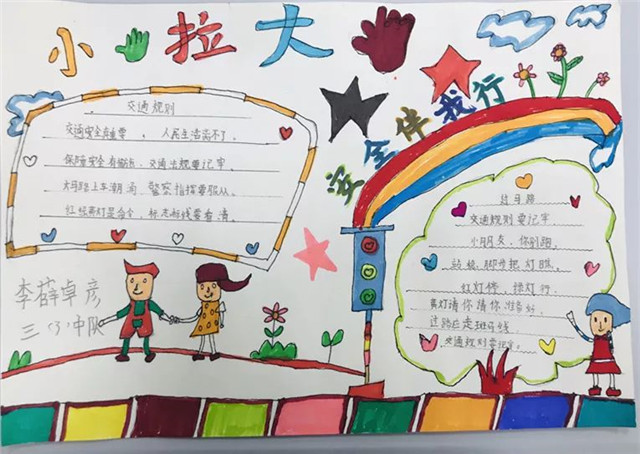 小手拉大手
安全伴我行
交通规则
交通安全最重要，人民生活离不了。
保障安全有秘诀，交通法规要记牢。
大马路上车潮涌，警察指挥要服从。
红绿黄灯是命令，标志标线要看清。
李薛卓彦
三（3）中队
过马路
交通规则要记牢
小朋友，你别跑。
站稳脚步把灯瞧。
红灯停，绿灯行
黄灯请你准备好。
过路应走斑马线
交通规则要记牢。